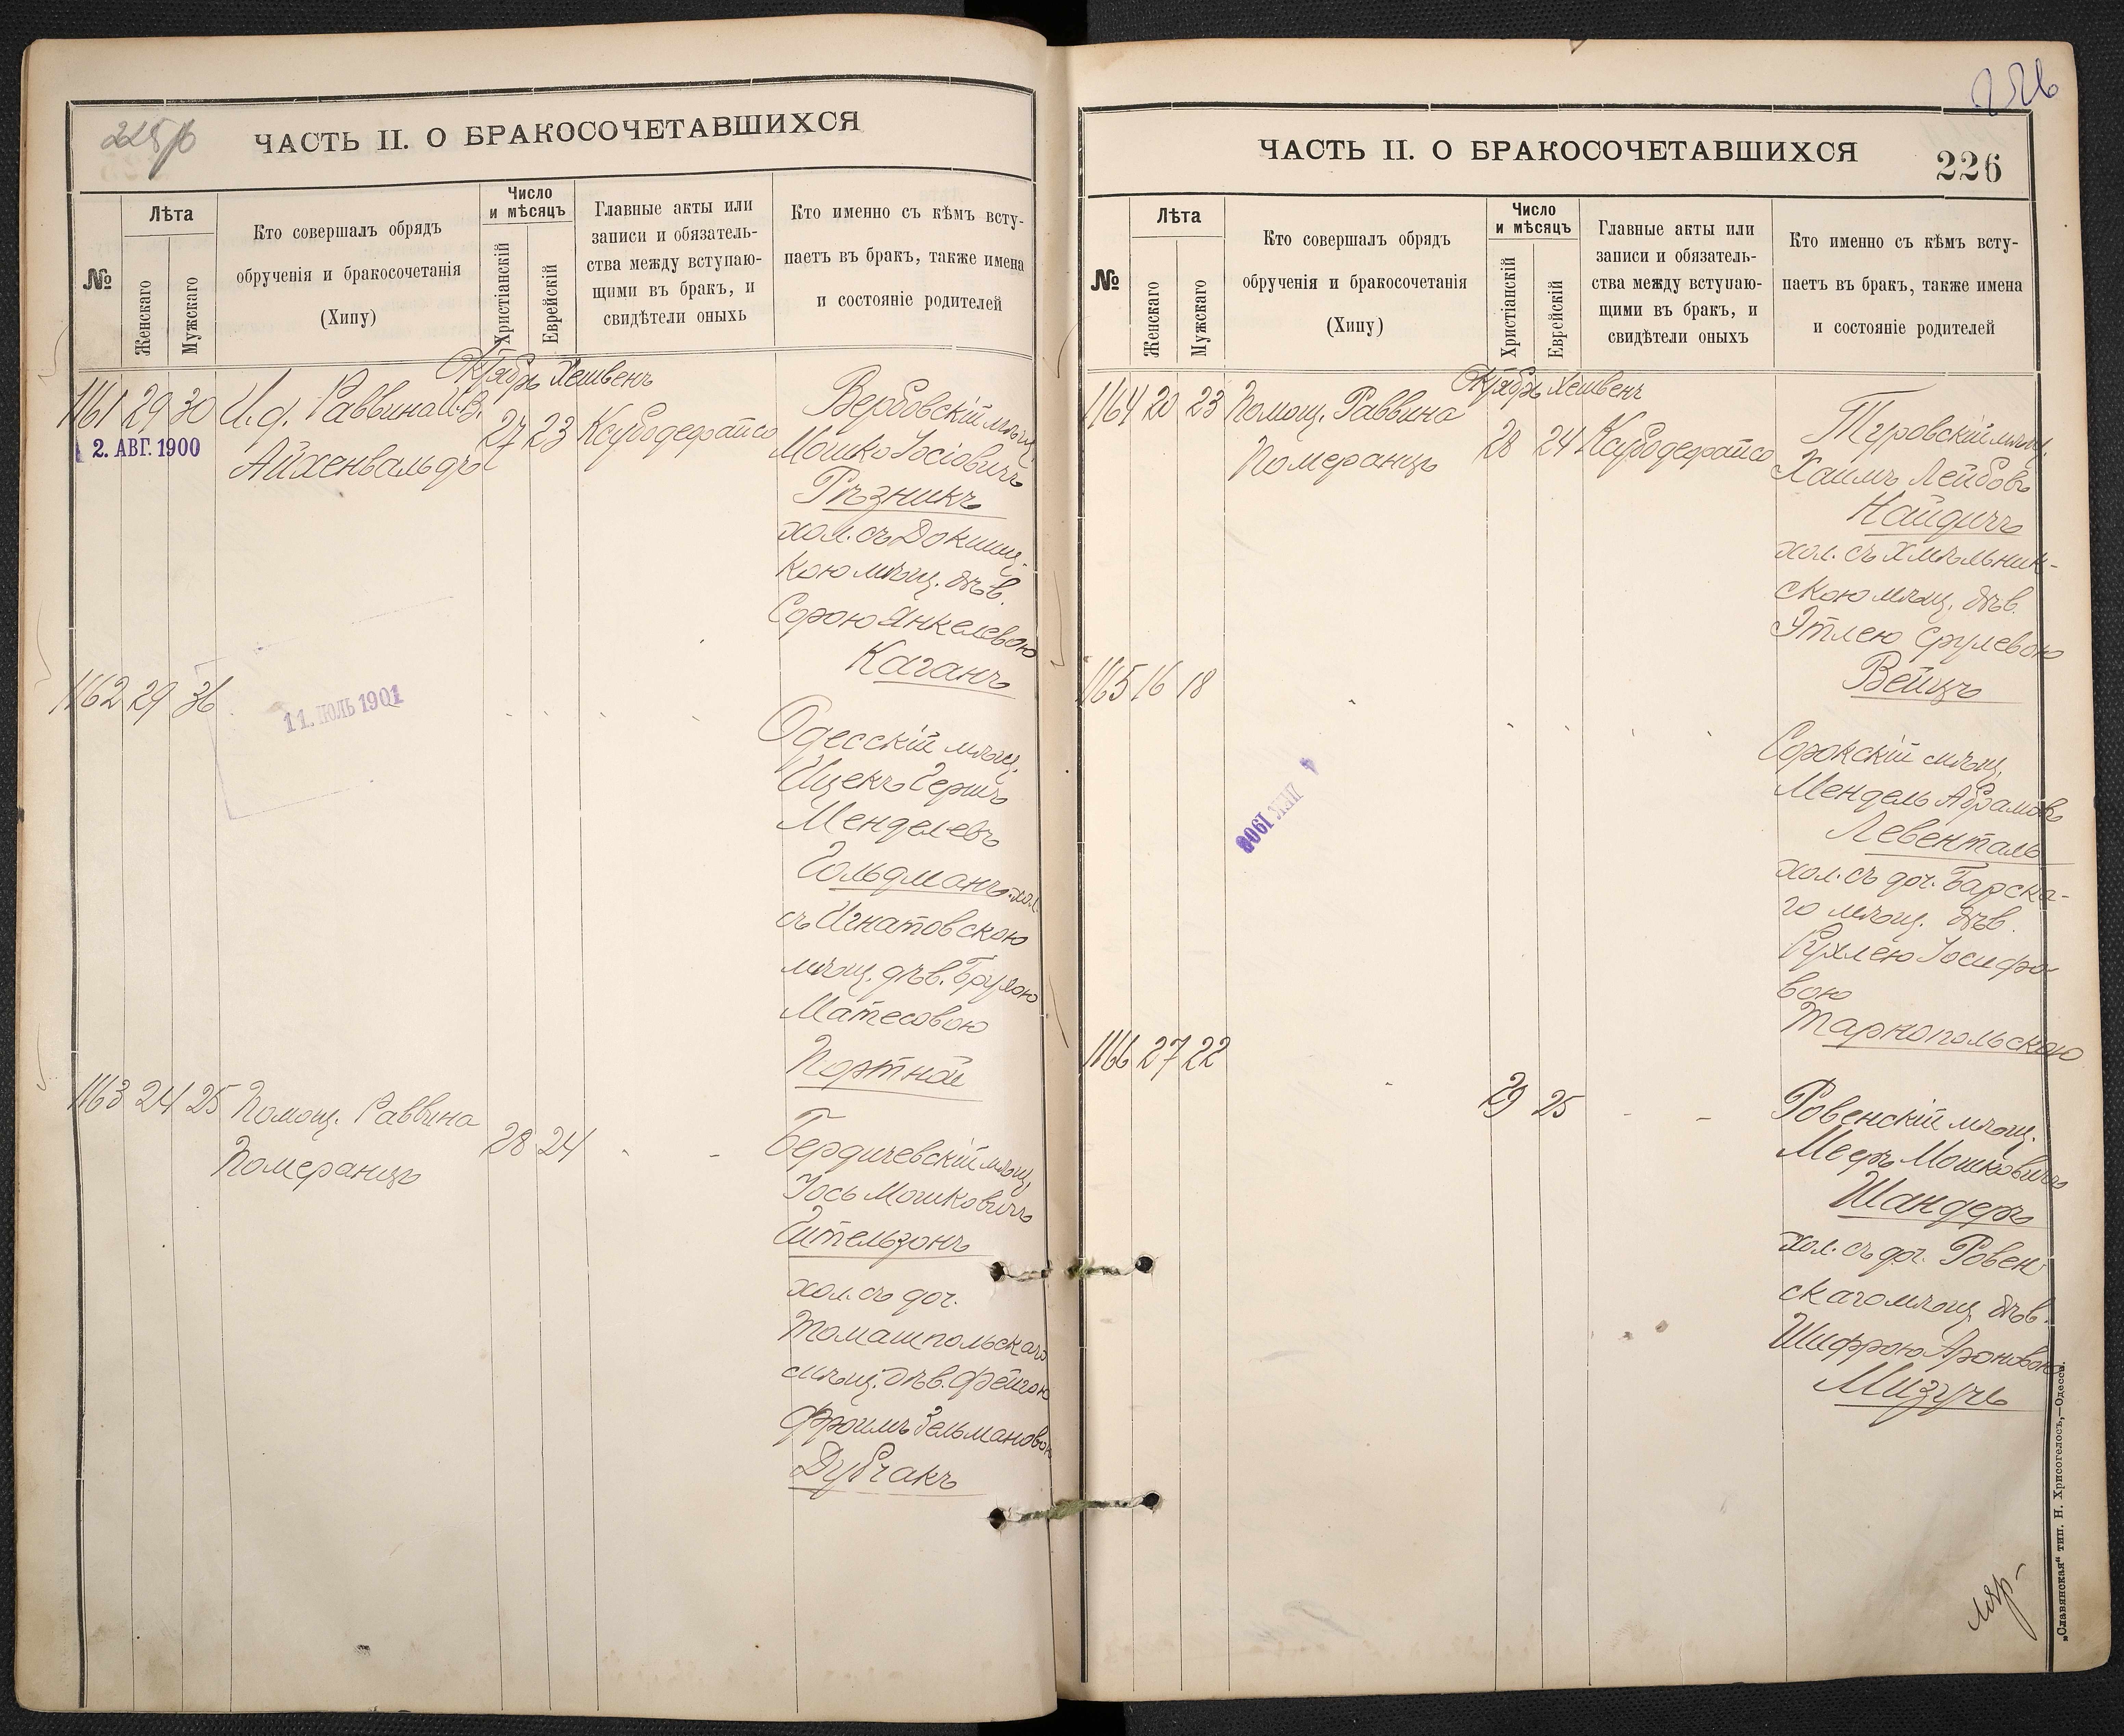 ЧАСТЬ II. О БРАКОСОЧЕТАВШИХСЯ
№
Лѣта
Женскаго
Мужскаго
Кто совершалъ обрядъ
обрученія и бракосочетанія
(Хипу)
Число
и мѣсяцъ
Христіанскій
Еврейскій
Главные акты или
записи и обязатель-
ства между вступаю-
щими въ бракъ, и
свидѣтели оныхъ
Кто именно съ кѣмъ всту-
паетъ въ бракъ, также имена
и состояніе родителей
Октябрь Хешвенъ
1161 29 30 И.д. Раввина
Айхенвальдъ
2. АВГ. 1900
27 23 Ксубодефайсо
Вербовскій мѣщ.
Мошко Іосіовичъ
Рѣзникъ
хол. съ Докшиц-
кою мѣщ. дѣв.
Сорою Янкелевою
Каганъ
1162 29 36
11. ІЮЛЬ 1901
Одесскій мѣщ.
Ицекъ Гершъ
Менделевъ
Гольдманъ хол.
съ Игнатовскою
мѣщ. дѣв. Брухою
Матесовою
Портной
1163 24 25 Помощ. Раввина
Померанцъ
28 24
Бердичевскій мѣщ.
Іось Мошковичъ
Гительзонъ
хол. съ доч.
Томашпольскаго
мѣщ. дѣв. Фейгою
Фроимъ Зельмановою
Дубчакъ
226
ЧАСТЬ II. О БРАКОСОЧЕТАВШИХСЯ
226
№
Лѣта
Женскаго
Мужскаго
Кто совершалъ обрядъ
обрученія и бракосочетанія
(Хипу)
Число
и мѣсяцъ
Христіанскій
Еврейскій
Главные акты или
записи и обязатель-
ства между вступаю-
щими въ бракъ, и
свидѣтели оныхъ
Кто именно съ кѣмъ всту-
паетъ въ бракъ, также имена
и состояніе родителей
Октябрь Хешвенъ
1164 20 23 Помощ. Раввина
Померанцъ
28 24 Ксубодефайсо
Туровскій мѣщ.
Хаимъ Лейбовъ
Найдичъ
хол. съ Хмѣльник-
скою мѣщ. дѣв.
Этлею Срулевою
Вейцъ
1165 16 18
4 ДЕК 1908
Сорокскій мѣщ.
Мендель Абрамовъ
Левенталь
хол. съ доч. Барска-
го мѣщ. дѣв.
Рухлею Іосифо-
вою
Тарнопольскою
1166 27 22
29 25
Ровенскій мѣщ.
Мееръ Мошковичъ
Шандеръ
хол. съ доч. Ровен-
скаго мѣщ. дѣв.
Шифрою Ароновою
Мизучъ
„Славянская“ тип. Н. Хрисогелосъ,—Одесса.